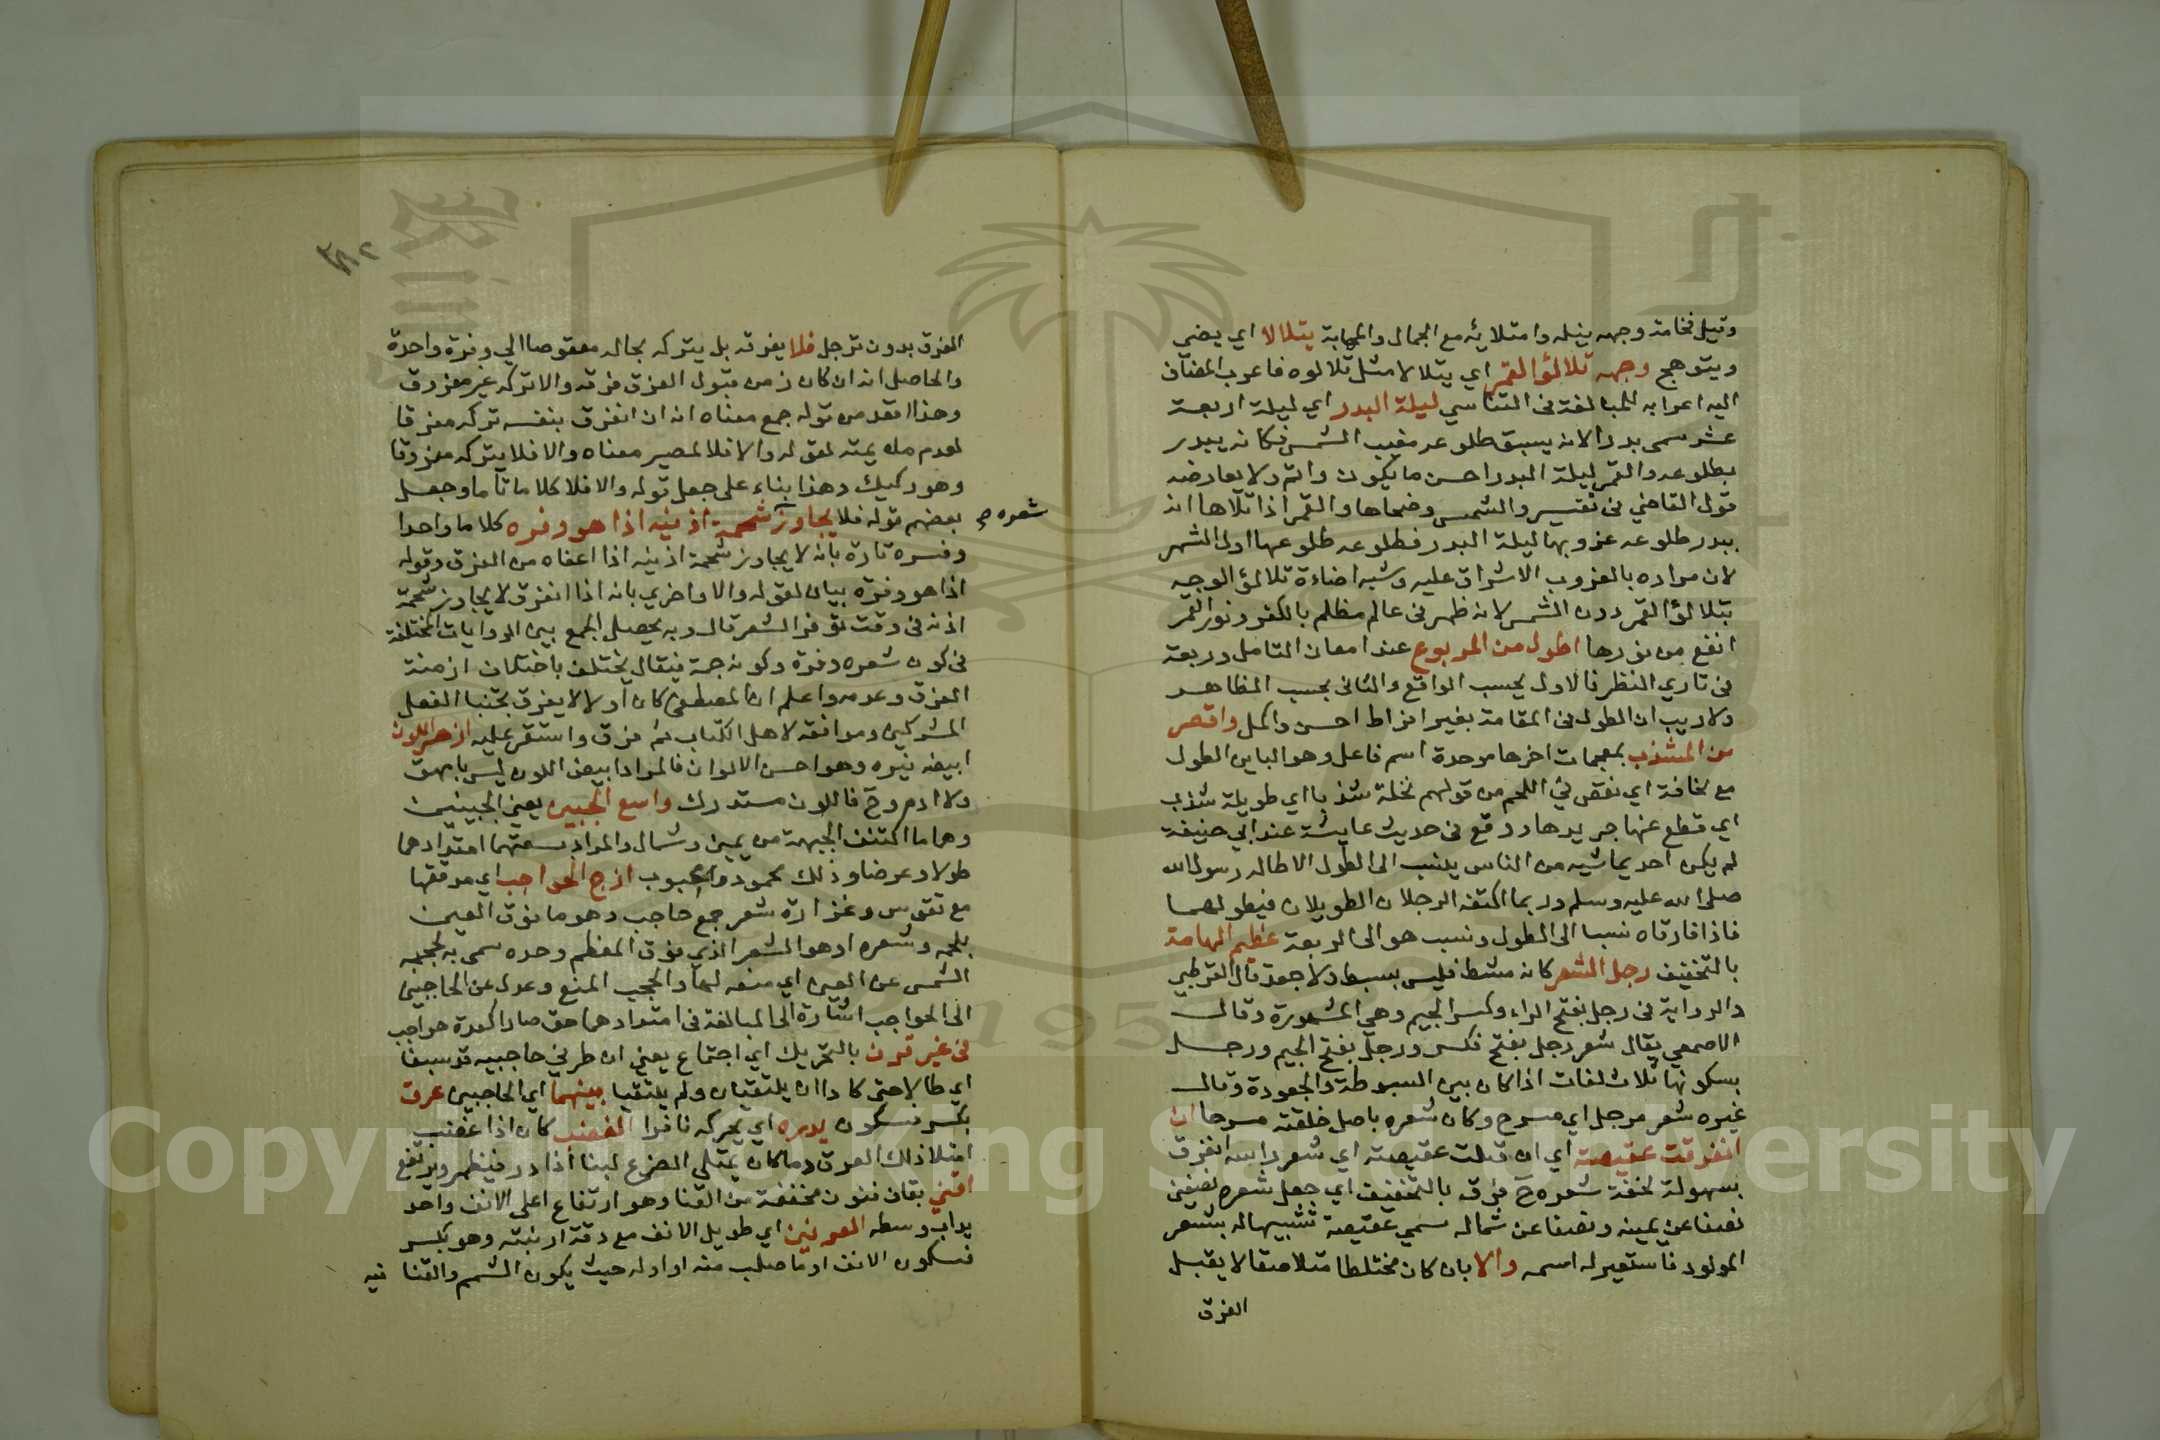 وقيل فخامة وجهه ينله وامتلائه مع الجمال والمهابة يتلالا اي يضي
ويتوهج وجهه تلالؤ القمر اي يتلالا مثل تلالوه فاعرب المضاف
اليه اعرابه للمبالغة في التناسي ليلة البدر اي ليلة اربعة
عشر سمى بدرا لانه يسبق طلوعه مغيب الشمس فكانه يبدر
بطلوعه والقمر ليلة البدر احسن ما يكون واتم ولا يعارضه
قول القاضي في تفسير والشمس وضحاها والقمر اذا تلاها انه
يبدر طلوعه غروبها ليلة البدر فطلوعه طلوعها اول الشهر
لان مراده بالغروب الاشراق عليه وشبه اضاءة تلالؤ الوجه
بتلالؤ القمر دون الشمس لانه ظهر في عالم مظلم بالكفر ونور القمر
انفع من نورها اطول من المربوع عند امعان التامل وربعة
في تاري النظر فالاول بحسب الواقع والثاني بحسب المظاهر
ولا ريب ان الطول في المقامة بغير افراط احسن واكمل واقصر
من المشذب بمعجمات اخرها موحدة اسم فاعل وهو الباين الطول
مع نحافة اي نقص في اللحم من قولهم نخلة شذبا اي طويلة شذب
اي قطع عنها جريدها ووقع في حديث عايشة عند ابي حنيفة
لم يكن احد يماشيه من الناس ينسب الى الطول الا طاله رسول الله
صلى الله عليه وسلم وربما اكتنفه الرجلان الطويلان فيطولهما
فاذا فارقاه نسبا الى الطول ونسب هو الى الربعة عظيم الهامة
بالتخفيف رجل الشعر كانه مشط فليس بسبط ولا جعد قال القرطبي
والرواية في رجل بفتح الراء وكسر الجيم وهي المشهورة وقال
الاصمعي يقال شعر رجل بفتح فكسر ورجل بفتح الجيم ورجل
بسكونها ثلاث لغات اذا كان بين السبوطة والجعودة وقال
غيره شعر مرجل اي مسرح وكان شعره باصل خلقته مسرحا ان
انفرقت عقيصته اي ان قبلت عقيصته اي شعر راسه انفرق
بسهولة لخفة شعره ح فرق بالتخفيف اي جعل شعره نصفين
نصفا عن يمينه ونصفا عن شماله سمي عقيصة تشبيها له بشعر
المولود فاستعير له اسمه والا بان كان مختلطا متلاصقا لا يقبل
الفرق
الفرق بدون ترجل فلا يفرقه بل يتركه بحاله معقوصا الي وفرة واحدة
والحاصل انه ان كان زمن قبول الفرق فرقه والا تركه غير مفروق
وهذا اقعد من قوله جمع معناه انه ان انفرق بنفسه تركه مفرقا
لعدم ملايمته لقوله والا فلا لمصير معناه والا فلا يتركه مفروقا
وهو ركيك وهذا بناء على جعل قوله والا فلا كلاما تاما وجعل
بعضهم قوله فلا يجاوز شحمة اذنيه اذا هو وفره كلاما واحدا
شعره صح
وفسره تارة بانه لا يجاوز شحمة اذنيه اذا اعفاه من الفرق وقوله
اذا هو وفرة بيان لقوله والا واخري بانه اذا انفرق لا يجاوز شحمة
اذنه في وقت توفر الشعر قال وبه يحصل الجمع بين الروايات المختلفة
في كون شعره وفرة وكونه جمة فيقال يختلف باختلاف ازمنة
الفرق وعدمه واعلم ان المصطفى كان اولا لا يفرق تجنبا لفعل
المشركين وموافقة لاهل الكتاب ثم فرق واستقر عليه ازهر اللون
ابيضه نيره وهو احسن الالوان فالمراد ابيض اللون ليس بابهق
ولا ادم وح فاللون مستدرك واسع الجبين يعني الجبينين
وهما ما اكتنف الجبهة من يمين وشمال والمراد بسعتهما امتدادهما
طولا وعرضا وذلك محمود ومحبوب ازج الحواجب اي مرققها
مع تقوس وغزارة شعر جمع حاجب وهو ما فوق العين
بلحمه وشعره او هو الشعر الذي فوق العظم وحده سمى به لحجبه
الشمس عن العين اي منعه لها والحجب المنع وعدل عن الحاجبين
الى الحواجب اشارة الى المبالغة في امتدادهما حتى صارا كعدة حواجب
في غير قرن بالتحريك اي اجتماع يعني ان طرفي حاجبيه قد سبغا
اي طالا حتى كادا ان يلتقيان ولم يلتقيا بينهما اي الحاجبين عرق
بكسر فسكون يدره اي يحركه نافرا الغضب كان اذا غضب
امتلا ذلك العرق دما كان يمتلي الضرع لبنا اذا در فيظهر ويرتفع
اقني بقاف فنون مخففة من القنا وهو ارتفاع اعلى الانف واحد
يداب وسطه العرنين اي طويل الانف مع دقة ارنبته وهو بكسر
فسكون الانف او ما صلب منه او اوله حيث يكون الشمم والقنا
فيه